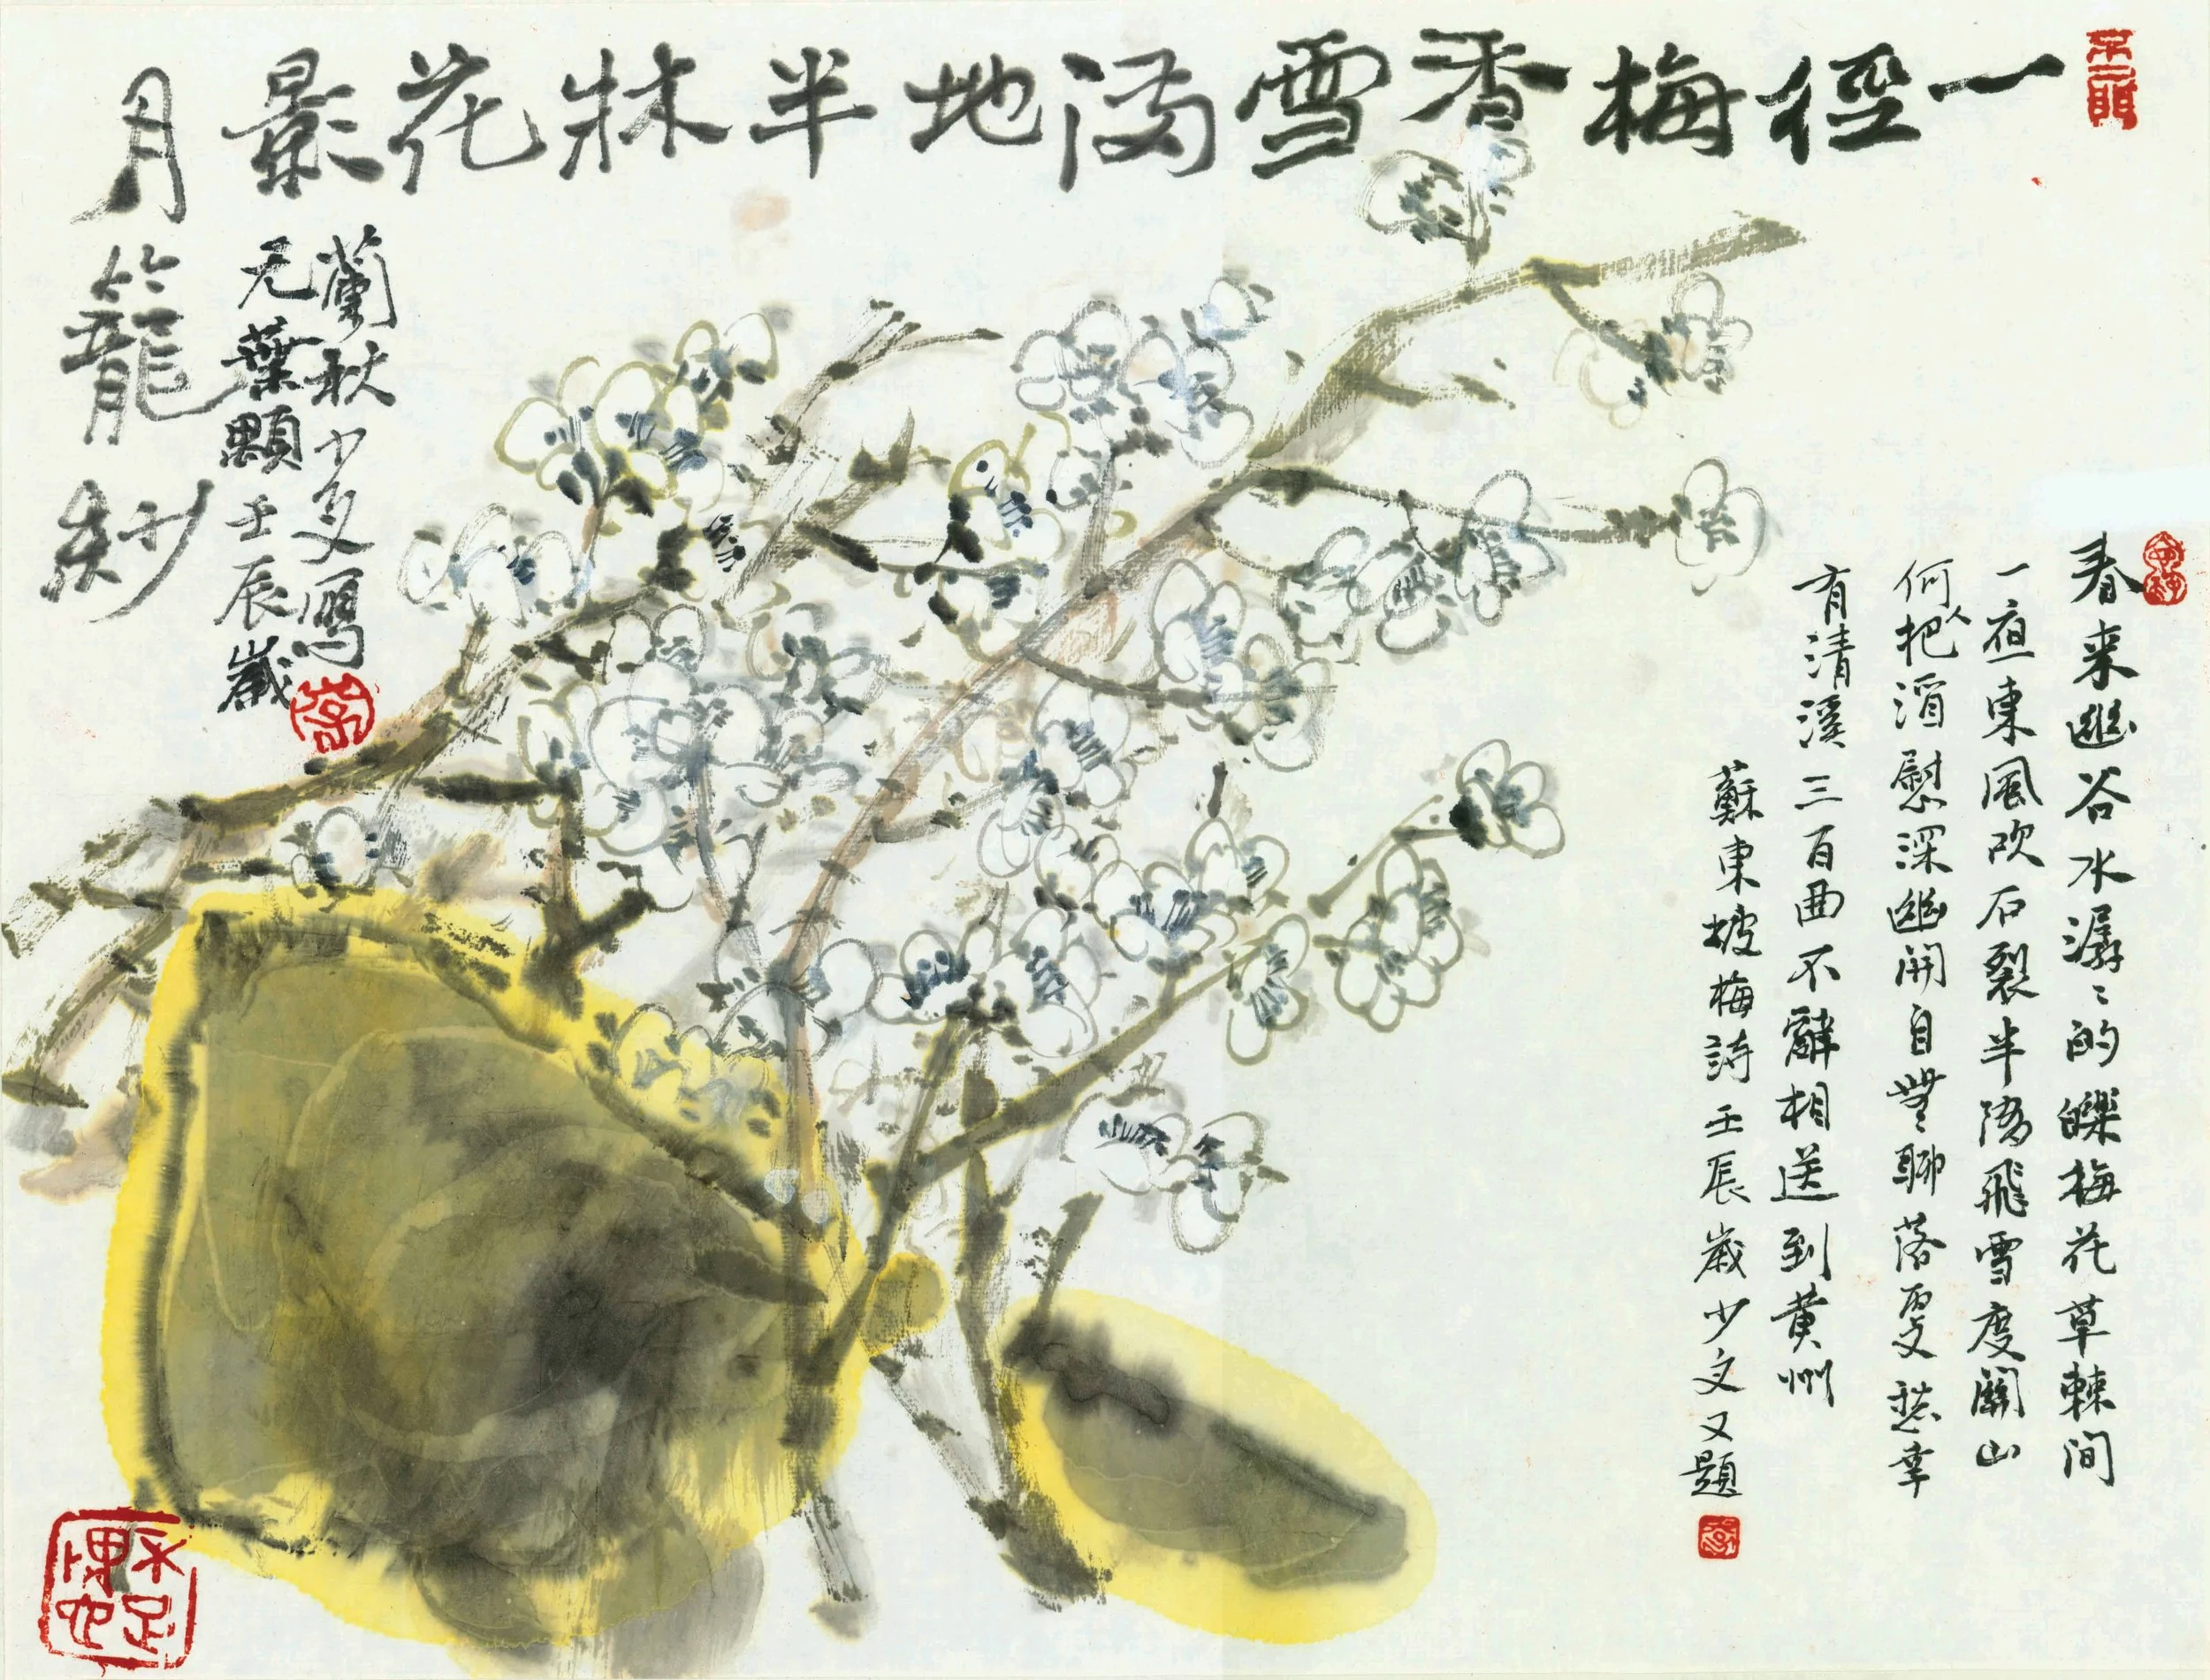 不二門
一徑梅香雪滿地半牀花影
月籠紗
蘭秋少文寫
无葉壬辰歲
春来幽谷水潺〻的皪梅花草棘间
一夜東風吹石裂半隨飛雪度關山
何人把酒慰深幽開自無〻聊落更愁幸
有清溪三百曲不辭相送到黄州
蘇東坡梅詩壬辰歲少文又題